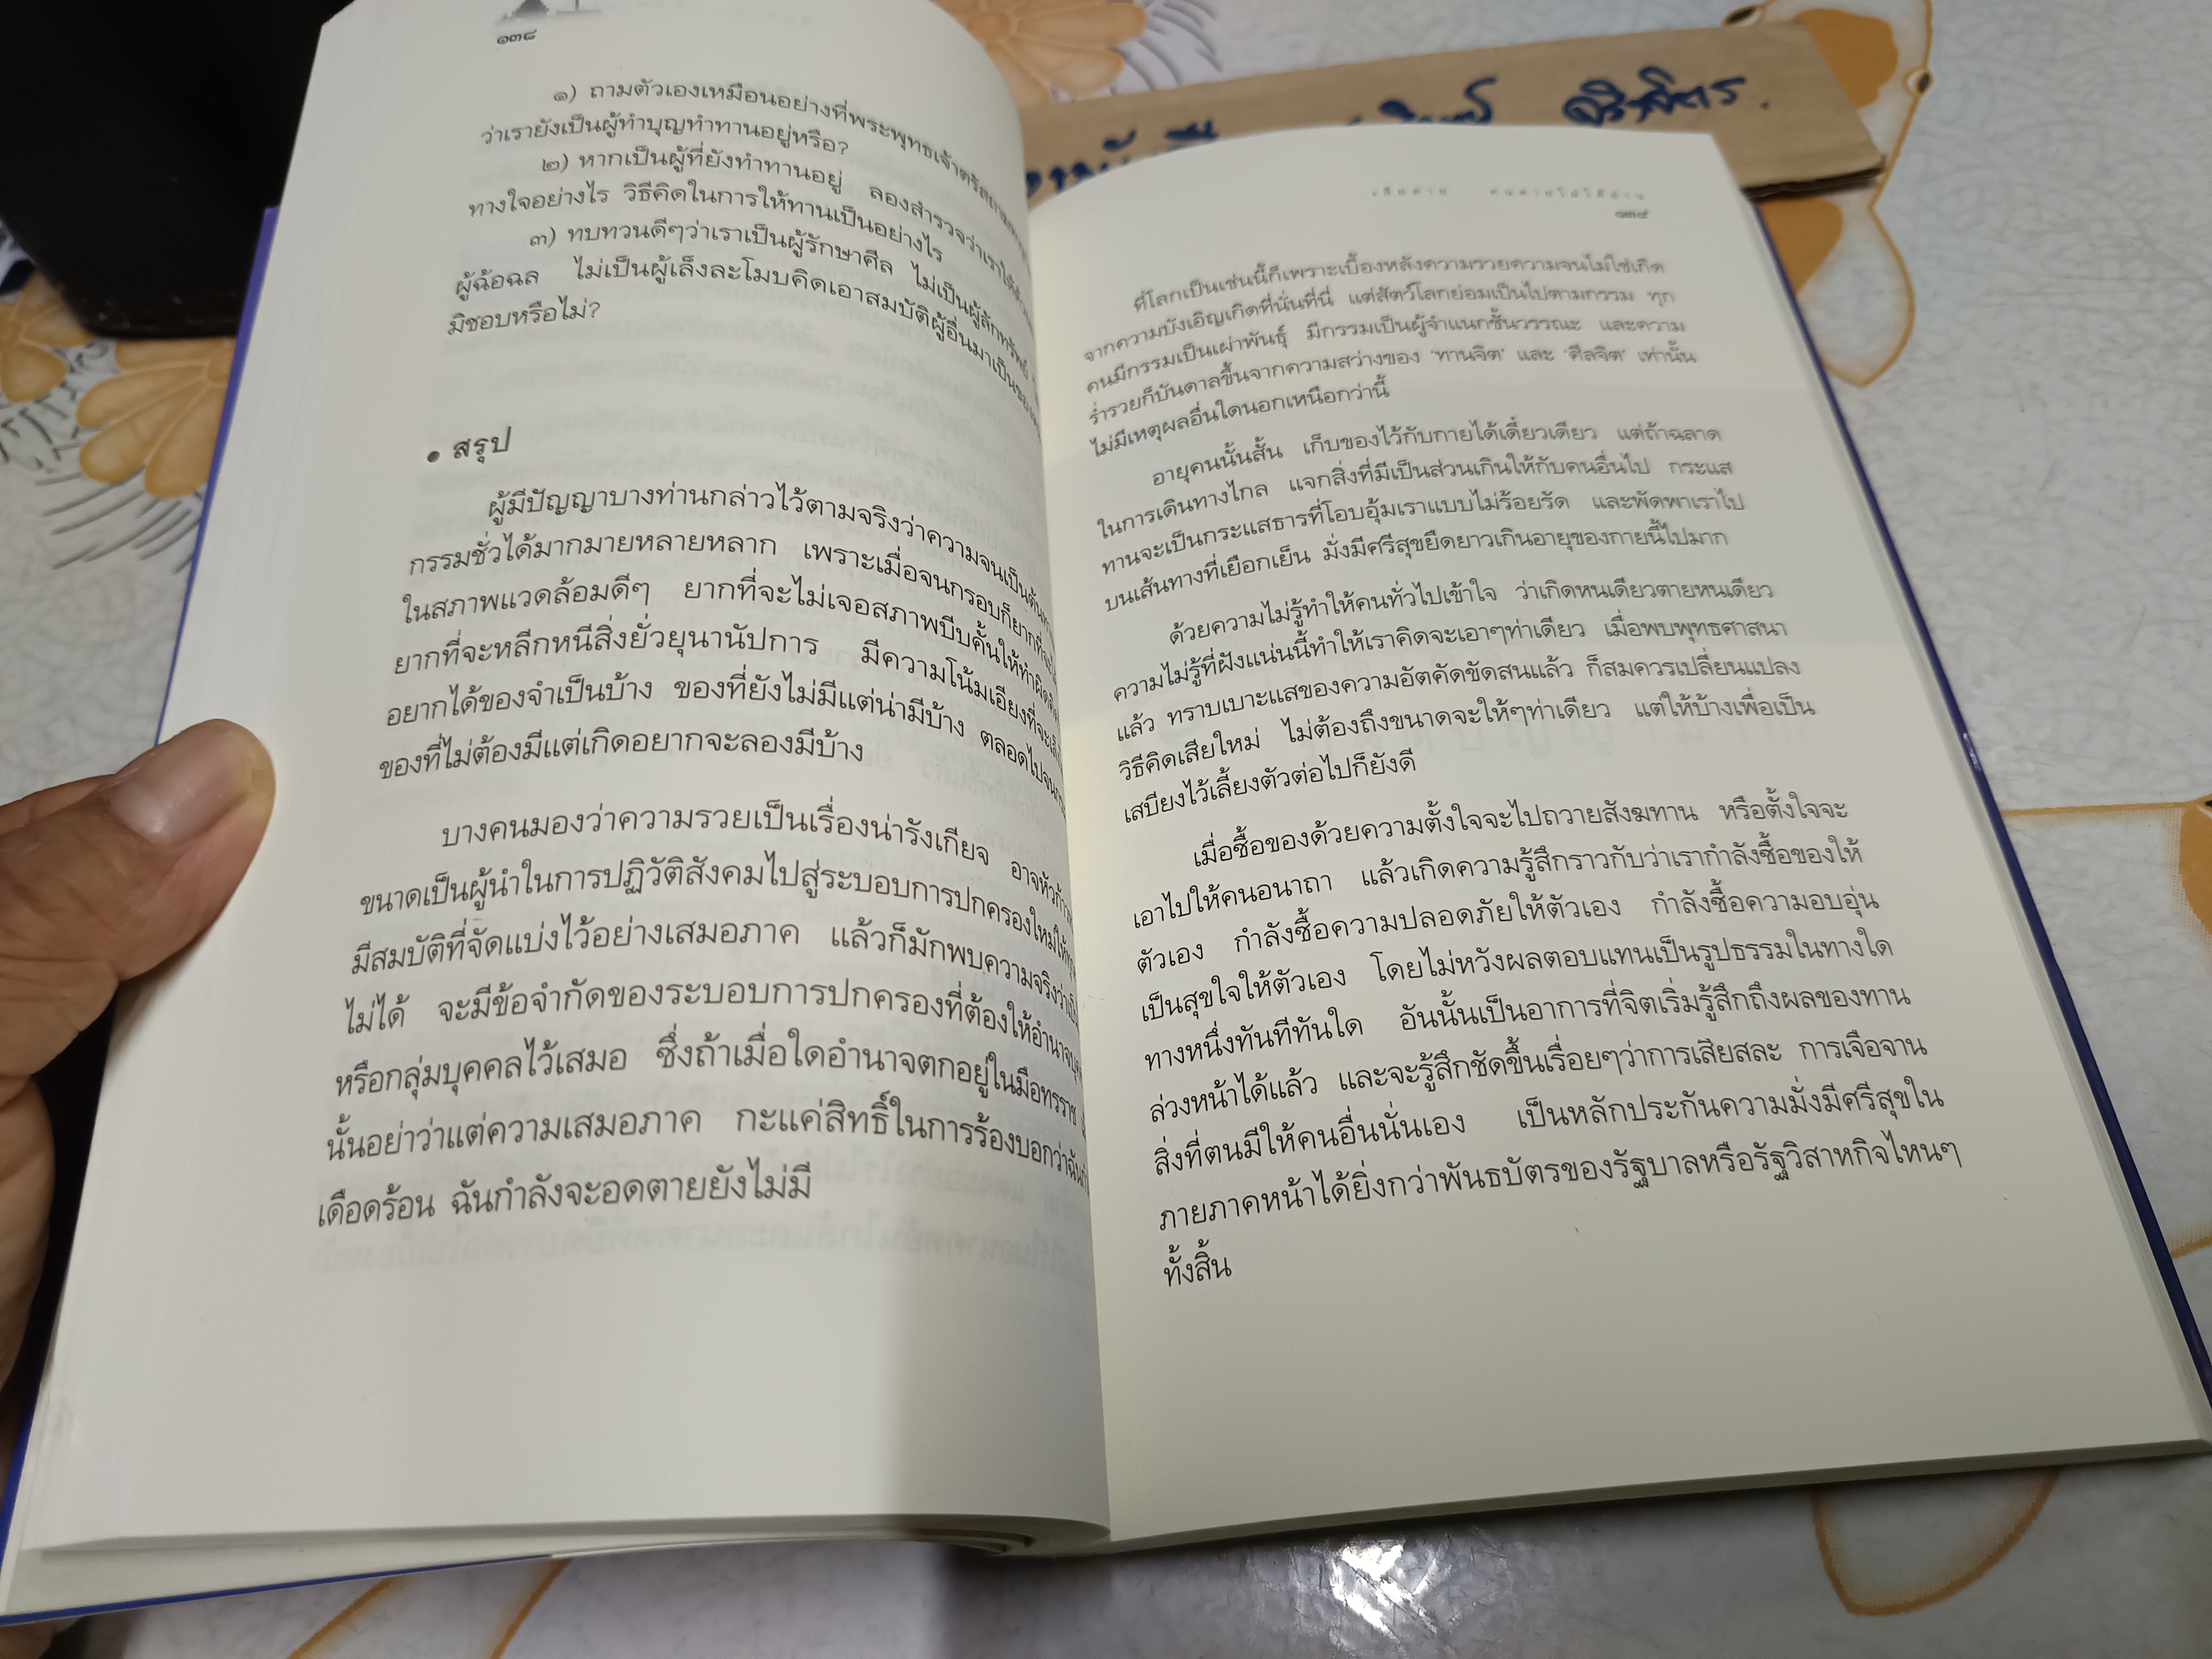 ๑๓๘
๑) ถามตัวเองเหมือนอย่างที่พระพุทธเจ้าตรัสถาม
ว่าเรายังเป็นผู้ทำบุญทำทานอยู่หรือ?
๒) หากเป็นผู้ที่ยังทำทานอยู่ ลองสำรวจว่าเราให้ด้วย
ทางใจอย่างไร วิธีคิดในการให้ทานเป็นอย่างไร
๓) ทบทวนดีๆว่าเราเป็นผู้รักษาศีล ไม่เป็นผู้ลักทรัพย์
ผู้ฉ้อฉล ไม่เป็นผู้เล็งละโมบคิดเอาสมบัติผู้อื่นมาเป็นของ
มิชอบหรือไม่?
• สรุป
ผู้มีปัญญาบางท่านกล่าวไว้ตามจริงว่าความจนเป็นต้น
กรรมชั่วได้มากมายหลายหลาก เพราะเมื่อจนกรอบก็ยากที่จะ
ในสภาพแวดล้อมดีๆ ยากที่จะไม่เจอสภาพบีบคั้นให้ทำผิด
ยากที่จะหลีกหนีสิ่งยั่วยุนานัปการ มีความโน้มเอียงที่จะ
อยากได้ของจำเป็นบ้าง ของที่ยังไม่มีแต่น่ามีบ้าง ตลอดไปจน
ของที่ไม่ต้องมีแต่เกิดอยากจะลองมีบ้าง
บางคนมองว่าความรวยเป็นเรื่องน่ารังเกียจ อาจหัว
ขนาดเป็นผู้นำในการปฏิวัติสังคมไปสู่ระบอบการปกครองใหม่ให้
มีสมบัติที่จัดแบ่งไว้อย่างเสมอภาค แล้วก็มักพบความจริงว่า
ไม่ได้ จะมีข้อจำกัดของระบอบการปกครองที่ต้องให้อำนาจ
หรือกลุ่มบุคคลไว้เสมอ ซึ่งถ้าเมื่อใดอำนาจตกอยู่ในมือทรราช
นั้นอย่าว่าแต่ความเสมอภาค กะแค่สิทธิ์ในการร้องบอกว่าฉัน
เดือดร้อน ฉันกำลังจะอดตายยังไม่มี
๑๓๙
ที่โลกเป็นเช่นนี้ก็เพราะเบื้องหลังความรวยความจนไม่ใช่เกิด
จากความบังเอิญเกิดที่นั่นที่นี่ แต่สัตว์โลกย่อมเป็นไปตามกรรม ทุก
คนมีกรรมเป็นเผ่าพันธุ์ มีกรรมเป็นผู้จำแนกชั้นวรรณะ และความ
ร่ำรวยก็บันดาลขึ้นจากความสว่างของ 'ทานจิต' และ 'ศีลจิต' เท่านั้น
ไม่มีเหตุผลอื่นใดนอกเหนือกว่านี้
อายุคนนั้นสั้น เก็บของไว้กับกายได้เดี๋ยวเดียว แต่ถ้าฉลาด
ในการเดินทางไกล แจกสิ่งที่มีเป็นส่วนเกินให้กับคนอื่นไป กระแส
ทานจะเป็นกระแสธารที่โอบอุ้มเราแบบไม่ร้อยรัด และพัดพาเราไป
บนเส้นทางที่เยือกเย็น มั่งมีศรีสุขยืดยาวเกินอายุของกายนี้ไปมาก
ด้วยความไม่รู้ทำให้คนทั่วไปเข้าใจ ว่าเกิดหนเดียวตายหนเดียว
ความไม่รู้ที่ฝังแน่นนี้ทำให้เราคิดจะเอาๆท่าเดียว เมื่อพบพุทธศาสนา
แล้ว ทราบเบาะแสของความอัตคัดขัดสนแล้ว ก็สมควรเปลี่ยนแปลง
วิธีคิดเสียใหม่ ไม่ต้องถึงขนาดจะให้ๆท่าเดียว แต่ให้บ้างเพื่อเป็น
เสบียงไว้เลี้ยงตัวต่อไปก็ยังดี
เมื่อซื้อของด้วยความตั้งใจจะไปถวายสังฆทาน หรือตั้งใจจะ
เอาไปให้คนอนาถา แล้วเกิดความรู้สึกราวกับว่าเรากำลังซื้อของให้
ตัวเอง กำลังซื้อความปลอดภัยให้ตัวเอง กำลังซื้อความอบอุ่น
เป็นสุขใจให้ตัวเอง โดยไม่หวังผลตอบแทนเป็นรูปธรรมในทางใด
ทางหนึ่งทันทีทันใด อันนั้นเป็นอาการที่จิตเริ่มรู้สึกถึงผลของทาน
ล่วงหน้าได้แล้ว และจะรู้สึกชัดขึ้นเรื่อยๆว่าการเสียสละ การเจือจาน
สิ่งที่ตนมีให้คนอื่นนั่นเอง เป็นหลักประกันความมั่งมีศรีสุขใน
ภายภาคหน้าได้ยิ่งกว่าพันธบัตรของรัฐบาลหรือรัฐวิสาหกิจไหนๆ
ทั้งสิ้น